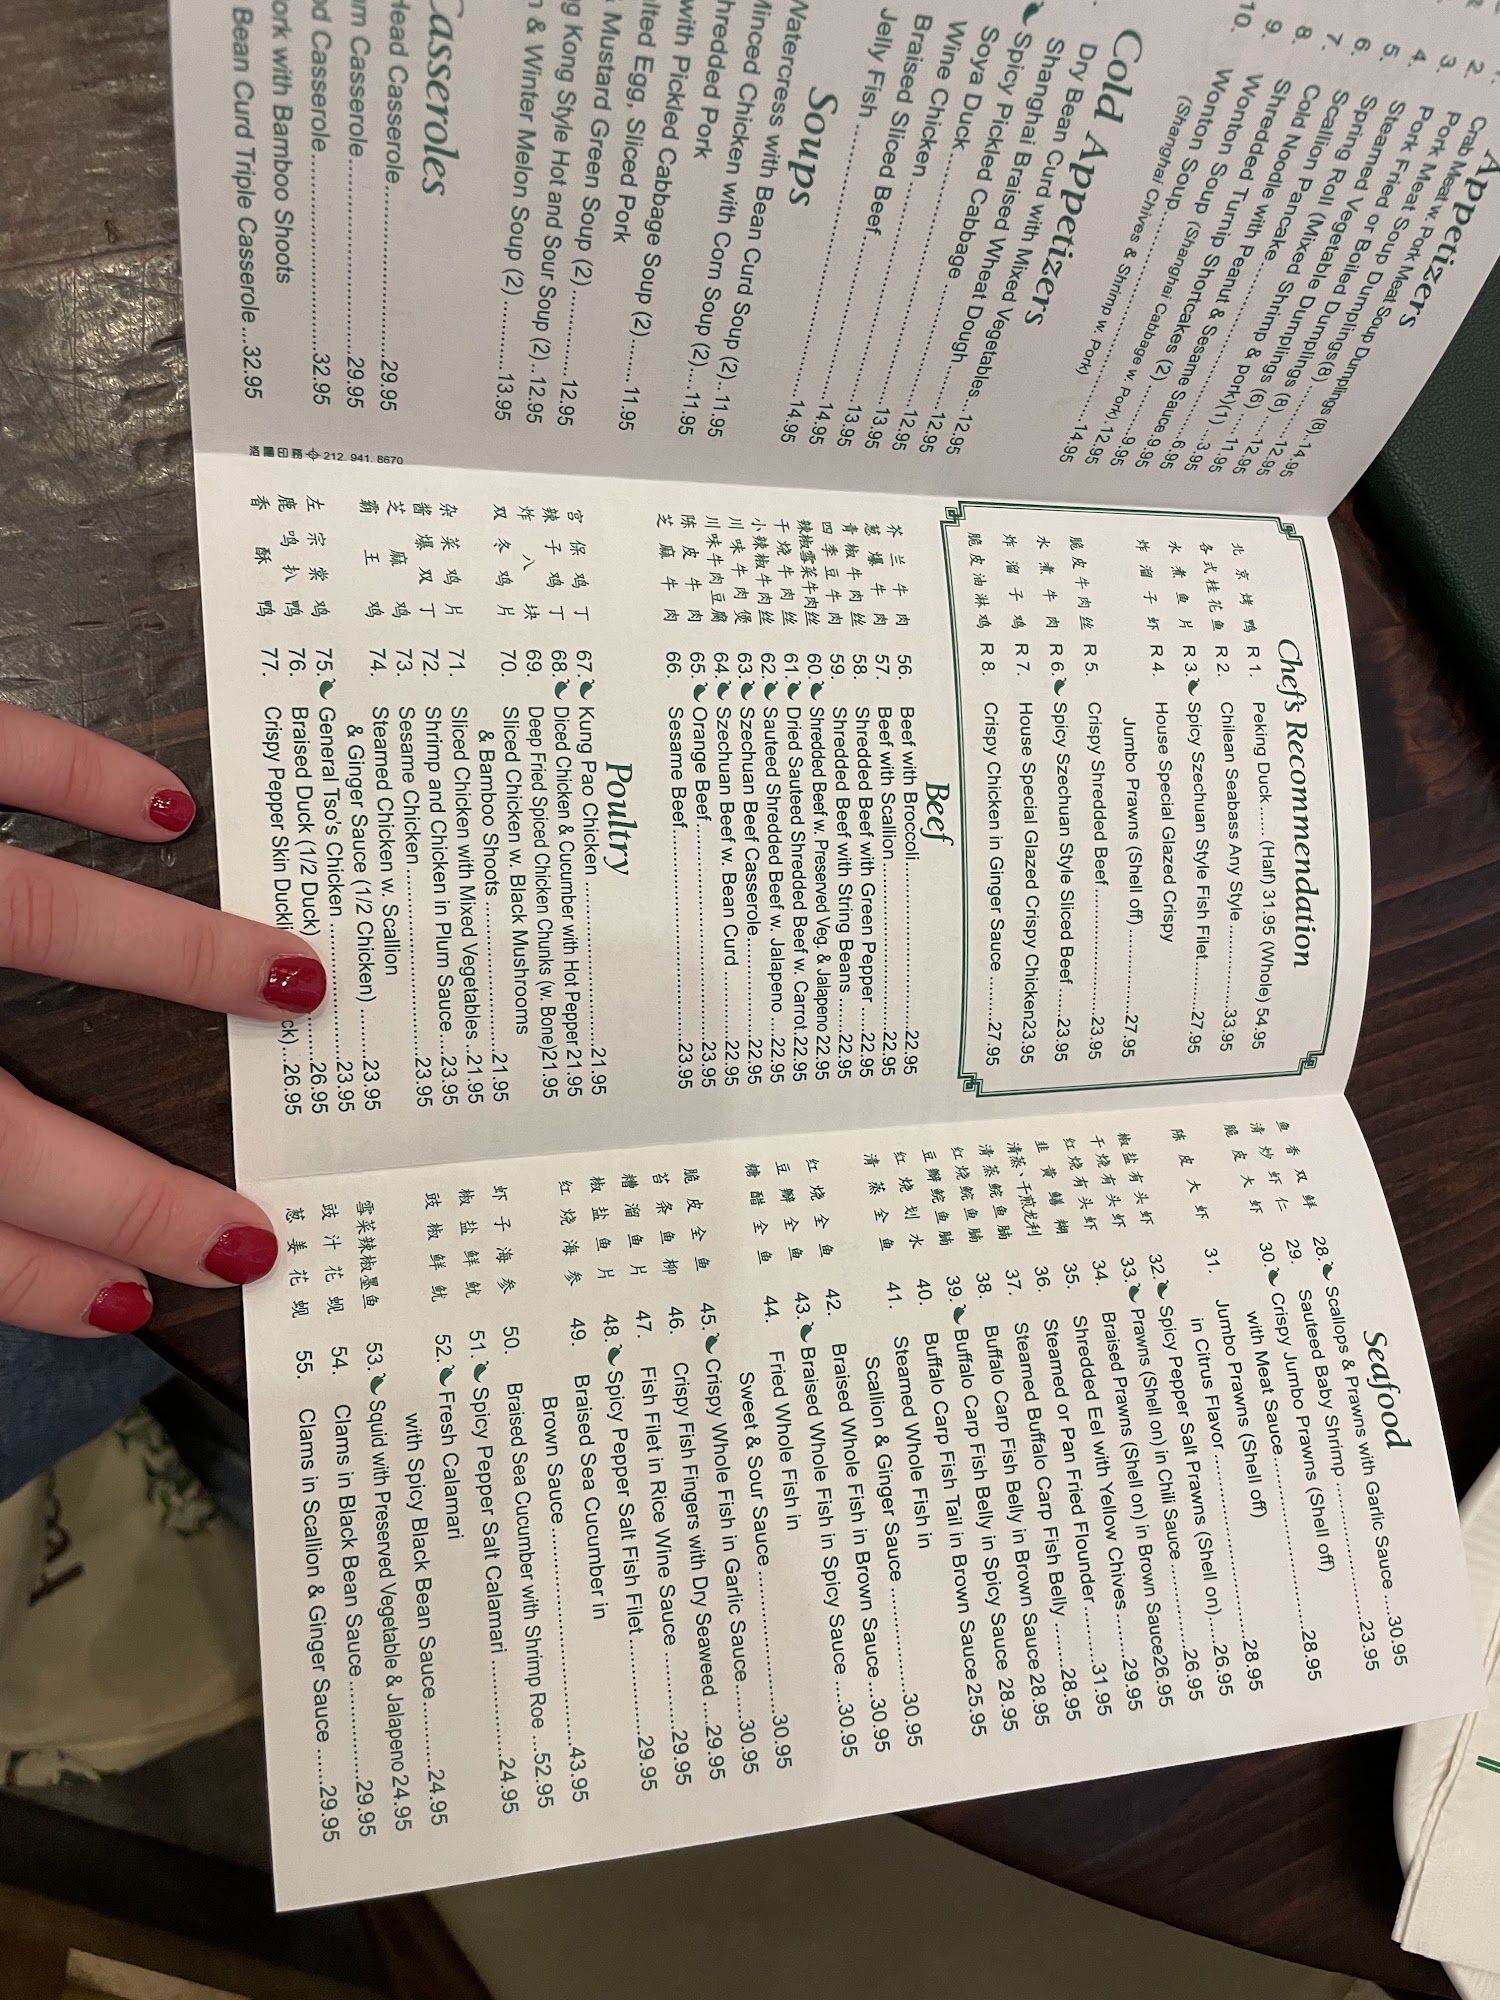 Appetizers
Crab Meat w. Pork Meat Soup Dumplings (8)..14.95
2. Pork Meat Soup Dumplings (8)
3. Steamed or Boiled Dumplings(8)
4. Spring Roll
5. Scallion Pancake
6. Cold Noodle with Peanut & Sesame Sauce
10.
(Shanghai Chives & Shrimp w. Pork)
Cold Appetizers
Dry Bean Curd with Mixed Vegetables...12.95
Shanghai Braised Wheat Dough
Spicy Pickled Cabbage
Soya Duck
Wine Chicken
Braised Sliced Beef
Jelly Fish
Soups
Watercress with Bean Curd Soup (2)..11.95
Minced Chicken with Corn Soup (2)....11.95
hredded Pork
with Pickled Cabbage Soup (2)......11.95
lted Egg, Sliced Pork
Mustard Green Soup (2)............12.95
g Kong Style Hot and Sour Soup (2)..12.95
& Winter Melon Soup (2)..........13.95
Casseroles
Head Casserole..........29.95
am Casserole..........29.95
d Casserole..........32.95
ork with Bamboo Shoots
Bean Curd Triple Casserole...32.95
212. 941. 8670
Chef's Recommendation
北京烤鸭 R 1. Peking Duck...... (Half) 31.95 (Whole) 54.95
各式桂花鱼 R 2. Chilean Seabass Any Style..........33.95
水煮鱼片 R 3. Spicy Szechuan Style Fish Filet..........27.95
炸溜子虾 R 4. House Special Glazed Crispy
Jumbo Prawns (Shell off)..........27.95
脆皮牛肉丝 R 5. Crispy Shredded Beef..........23.95
水煮牛肉 R 6. Spicy Szechuan Style Sliced Beef ....23.95
炸溜子鸡 R 7. House Special Glazed Crispy Chicken23.95
脆皮油淋鸡 R 8. Crispy Chicken in Ginger Sauce .......27.95
Beef
芥兰牛肉 56. Beef with Broccoli..........22.95
葱爆牛肉 57. Beef with Scallion..........22.95
青椒牛肉丝 58. Shredded Beef with Green Pepper .....22.95
四季豆牛肉 59. Shredded Beef with String Beans .....22.95
辣椒雪菜牛肉丝 60. Shredded Beef w. Preserved Veg. & Jalapeno 22.95
干烧牛肉丝 61. Dried Sauteed Shredded Beef w. Carrot 22.95
小辣椒牛肉丝 62. Sauteed Shredded Beef w. Jalapeno ...22.95
川味牛肉煲 63. Szechuan Beef Casserole..........22.95
川味牛肉豆腐 64. Szechuan Beef w. Bean Curd ..........22.95
陈皮牛肉 65. Orange Beef..........23.95
芝麻牛肉 66. Sesame Beef..........23.95
Poultry
宫保鸡丁 67. Kung Pao Chicken ..........21.95
辣子鸡丁 68. Diced Chicken & Cucumber with Hot Pepper 21.95
炸八块 69. Deep Fried Spiced Chicken Chunks (w. Bone)21.95
双冬鸡片 70. Sliced Chicken w. Black Mushrooms
& Bamboo Shoots ..........21.95
杂菜鸡片 71. Sliced Chicken with Mixed Vegetables ..21.95
酱爆双丁 72. Shrimp and Chicken in Plum Sauce ...23.95
芝麻鸡 73. Sesame Chicken ..........23.95
霸王鸡 74. Steamed Chicken w. Scallion
& Ginger Sauce (1/2 Chicken) ........23.95
左宗棠鸡 75. General Tso's Chicken ..........23.95
鹿鸣扒鸭 76. Braised Duck (1/2 Duck) ..........26.95
香酥鸭 77. Crispy Pepper Skin Duckli ck)...26.95
Seafood
鱼香双鲜 28. Scallops & Prawns with Garlic Sauce ....30.95
清炒虾仁 29. Sauteed Baby Shrimp ..........23.95
脆皮大虾 30. Crispy Jumbo Prawns (Shell off)
with Meat Sauce..........28.95
陈皮大虾 31. Jumbo Prawns (Shell off)
in Citrus Flavor ..........28.95
椒盐有头虾 32. Spicy Pepper Salt Prawns (Shell on)....26.95
干烧有头虾 33. Prawns (Shell on) in Chili Sauce ..........26.95
红烧有头虾 34. Braised Prawns (Shell on) in Brown Sauce26.95
韭黄鳝糊 35. Shredded Eel with Yellow Chives.......29.95
清蒸、干煎龙利 36. Steamed or Pan Fried Flounder ........31.95
清蒸鲩鱼腩 37. Steamed Buffalo Carp Fish Belly ........28.95
红烧鲩鱼腩 38. Buffalo Carp Fish Belly in Brown Sauce 28.95
豆瓣鲩鱼腩 39. Buffalo Carp Fish Belly in Spicy Sauce 28.95
红烧划水 40. Buffalo Carp Fish Tail in Brown Sauce 25.95
清蒸全鱼 41. Steamed Whole Fish in
Scallion & Ginger Sauce ..........30.95
红烧全鱼 42. Braised Whole Fish in Brown Sauce ...30.95
豆瓣全鱼 43. Braised Whole Fish in Spicy Sauce ....30.95
糖醋全鱼 44. Fried Whole Fish in
Sweet & Sour Sauce ..........30.95
脆皮全鱼 45. Crispy Whole Fish in Garlic Sauce.....30.95
苔条鱼柳 46. Crispy Fish Fingers with Dry Seaweed ....29.95
糟溜鱼片 47. Fish Filet in Rice Wine Sauce ..........29.95
椒盐鱼片 48. Spicy Pepper Salt Fish Filet ..........29.95
红烧海参 49. Braised Sea Cucumber in
Brown Sauce ..........43.95
虾子海参 50. Braised Sea Cucumber with Shrimp Roe ...52.95
椒盐鲜鱿 51. Spicy Pepper Salt Calamari ..........24.95
豉椒鲜鱿 52. Fresh Calamari
with Spicy Black Bean Sauce..........24.95
雪菜辣椒墨鱼 53. Squid with Preserved Vegetable & Jalapeno 24.95
豉汁花蚬 54. Clams in Black Bean Sauce ..........29.95
葱姜花蚬 55. Clams in Scallion & Ginger Sauce ......29.95